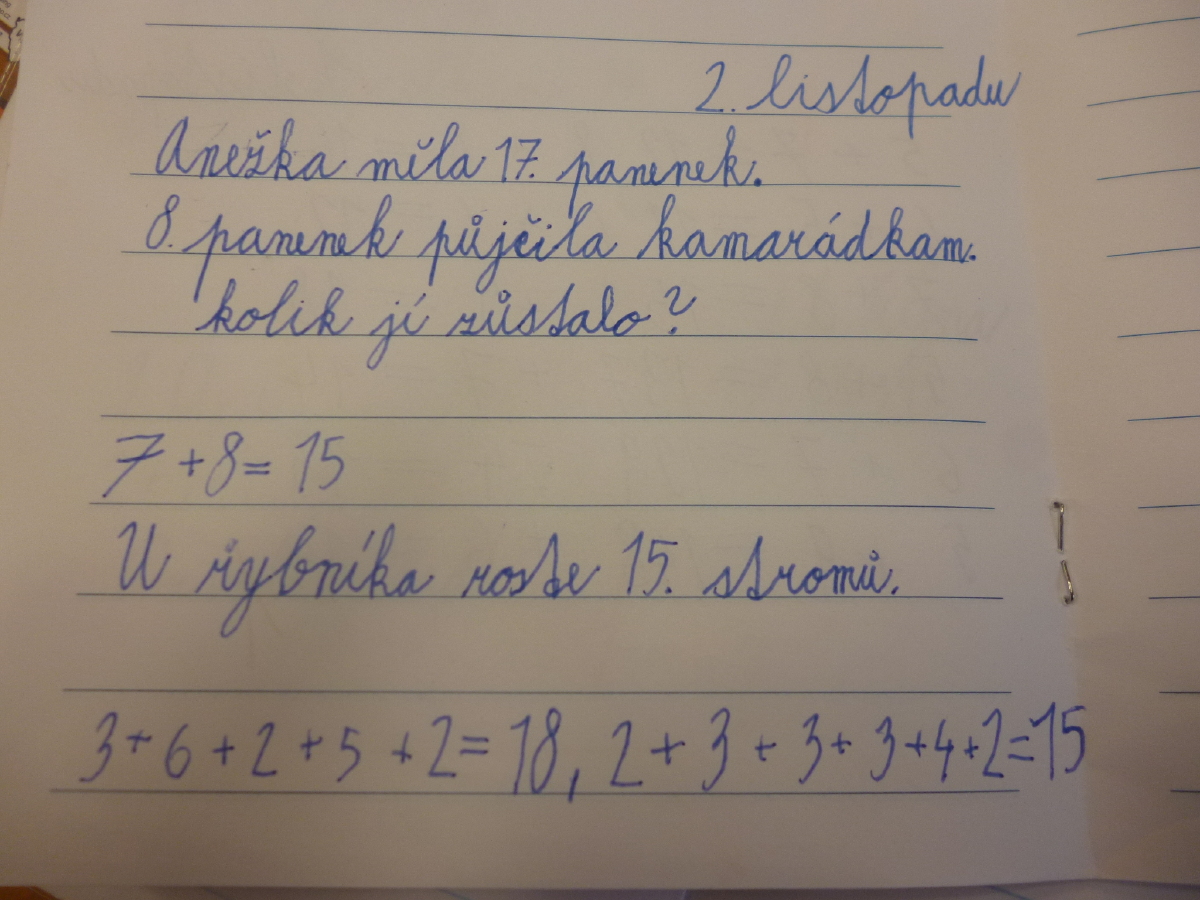 2. listopadu
Anežka měla 17. panenek.
8. panenek půjčila kamarádkam.
kolik jí zůstalo?
7+8= 15
U řybníka roste 15. stromů.
3+6+2+5+2=18, 2+3+3+3+4+2=15